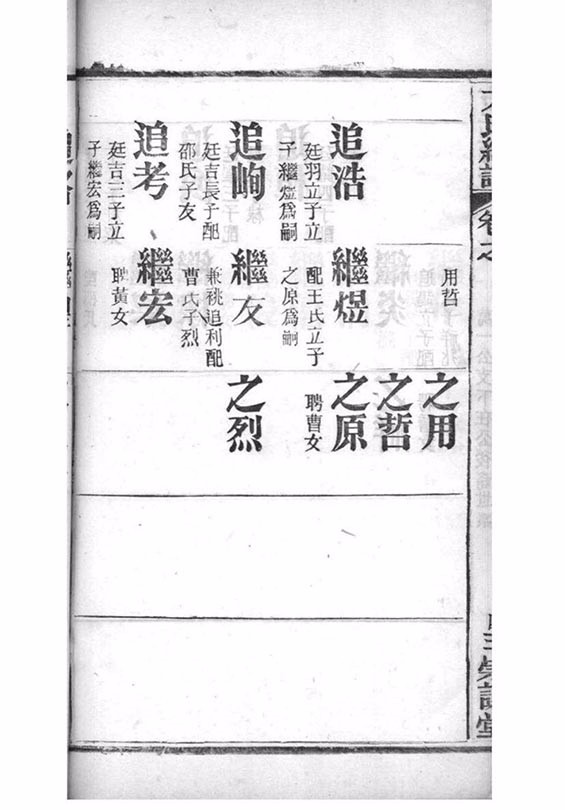 追浩
廷羽立子立
子繼煜爲嗣
追峋
廷吉長子配
邵氏子友
追考
廷吉三子立
子繼宏爲嗣
用哲
繼煜
配王氏立子
之原爲嗣
繼友
兼祧追利配
曹氏子烈
繼宏
聘黃女
之用
之哲
之原
聘曹女
之烈